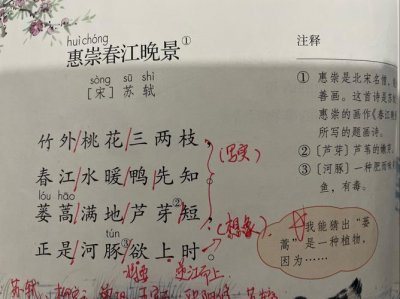 huì chóng
惠崇春江晚景①
sòng sū shì
[宋] 苏 轼
竹外/桃花/三两枝
春江/水暖/鸭/先知
(写实)
lóu hāo
蒌蒿/满地/芦芽②/短
(想象)
tún
正是/河豚③/欲上/时。
注释
① 惠崇是北宋名僧,
善画。这首诗是苏
惠崇的画作《春江
所写的题画诗。
② 〔芦芽〕芦苇的嫩
③ 〔河豚〕一种肥而
鱼,有毒。
我能猜出“蒌
蒿”是一种植物,
因为……